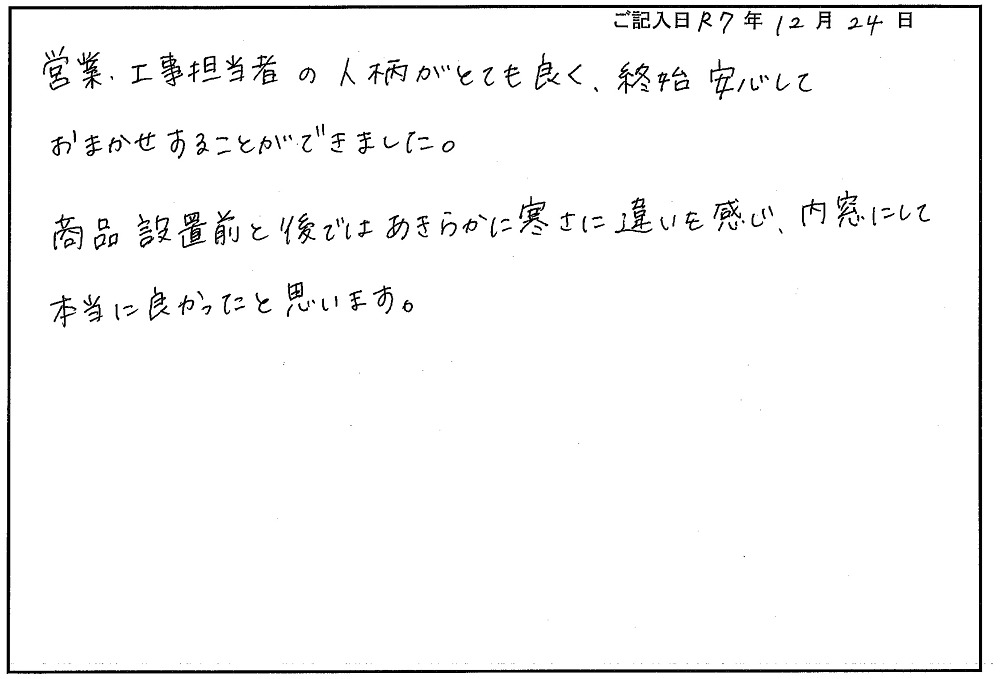 ご記入日 R7 年 12 月 24 日
営業・工事担当者の人柄がとても良く、終始安心して
おまかせすることができました。
商品設置前と後ではあきらかに寒さに違いを感じ、内窓にして
本当に良かったと思います。